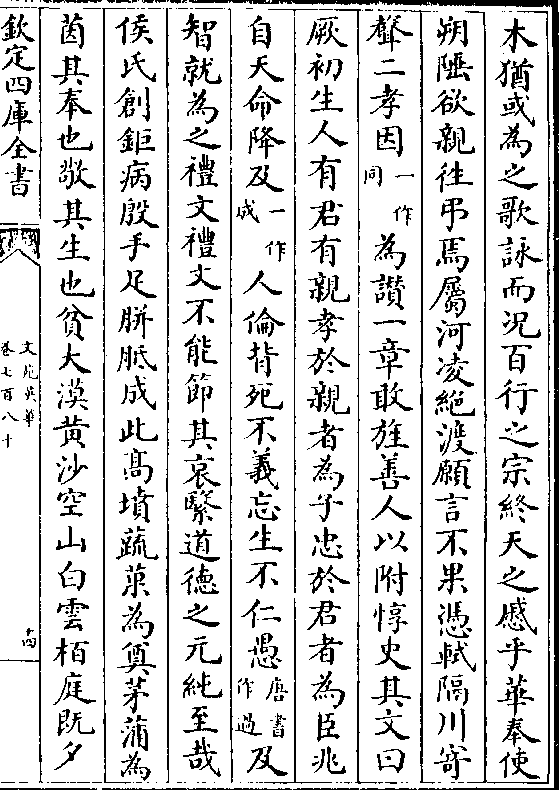 木猶或為之歌詠而況百行之宗終天之慼乎華奉使
朔陲欲親往弔焉屬河凌絕渡願言不果憑軾隔川寄
聲二孝因一作同為讚一章敢旌善人以附惇史其文曰
厥初生人有君有親孝於親者為子忠於君者為臣兆
自天命降及一作成人倫背死不義忘生不仁愚唐書作過及
智就為之禮文禮文不能節其哀繄道德之元純至哉
侯氏創鉅病殷手足胼胝成此髙墳蔬菓為奠茅蒲為
茵其奉也敬其生也貧大漠黄沙空山白雲栢庭既夕
欽定四庫全書
文苑英華
卷七百八十
四